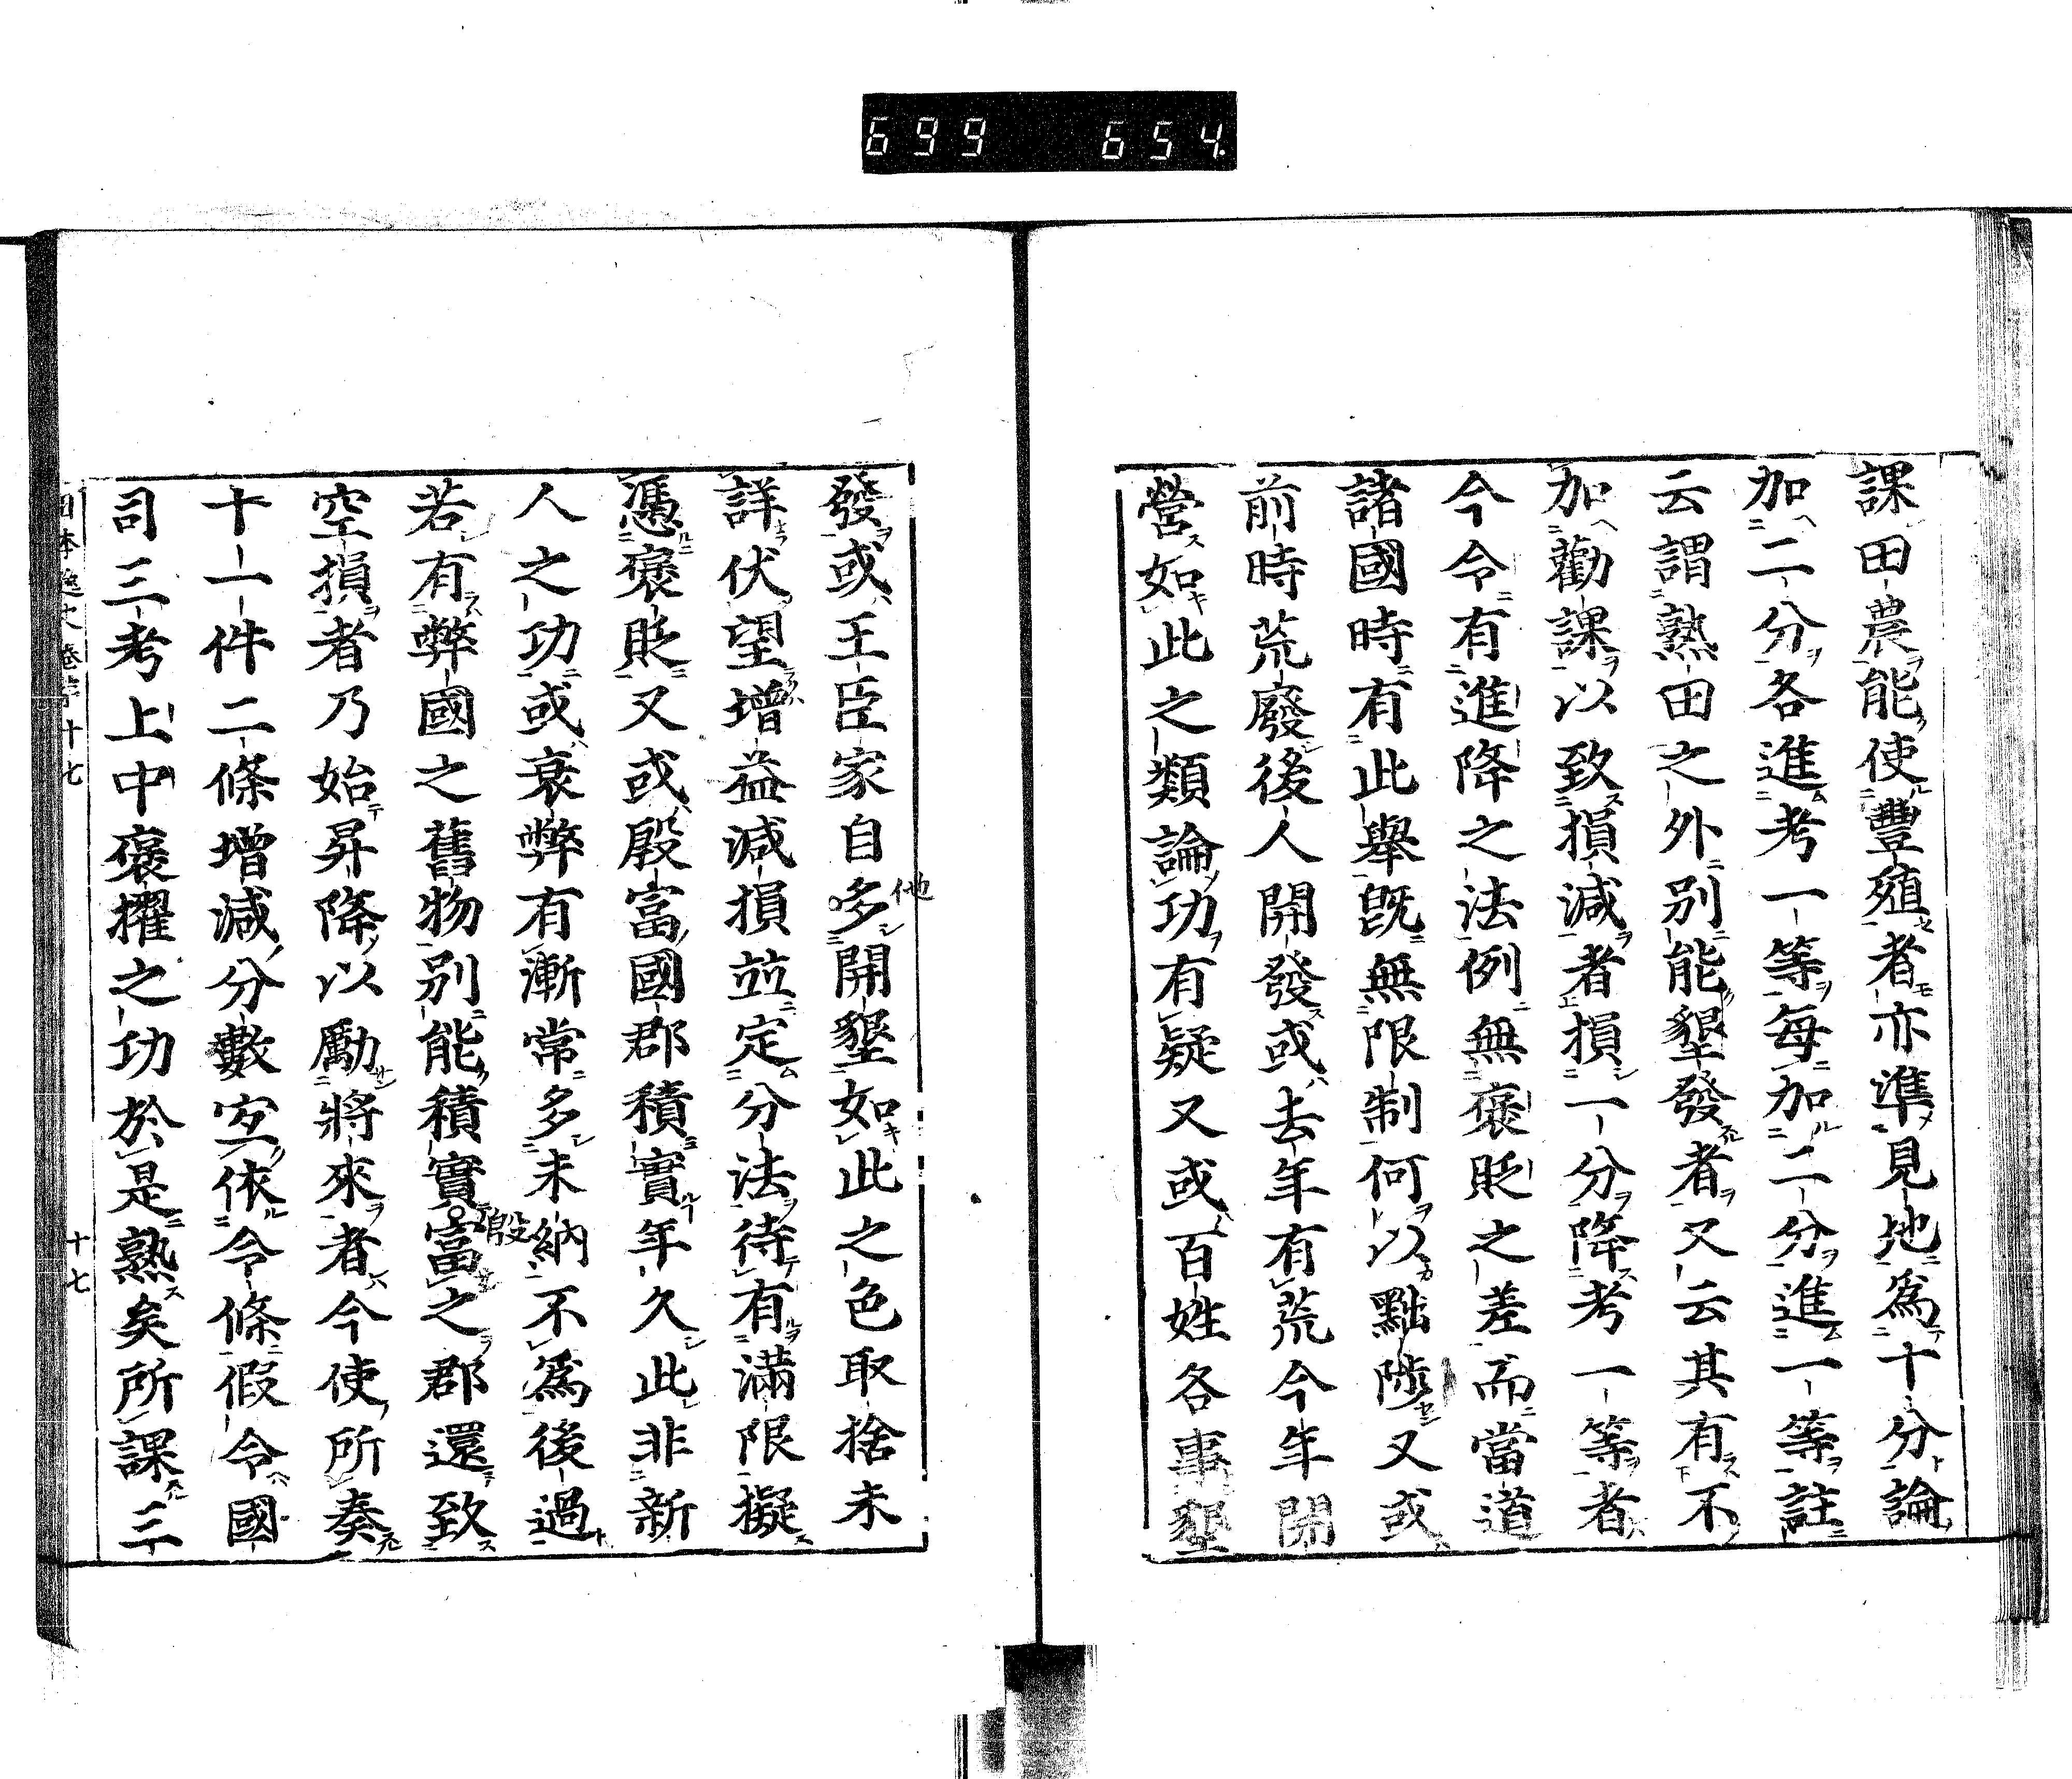 699 654.
課田農能使豐殖者亦準見地爲十分論
加二分各進考一等每加二分進一等註
云謂熟田之外別能墾發者又云其有不
加勸課以致損減者損一分降考一等者
今令有進降之法例無褒貶之差而當道
諸國時有此舉既無限制何以黜陟又或
前時荒廢後人開發或去年有荒今年開
營如此之類論功有疑又或百姓各事墾
發或王臣家自多開墾如此之色取捨未
他
詳伏望增益減損並定分法待有滿限擬
憑褒貶又或殷富國郡積實年久此非新
人之功或衰弊有漸常多未納不爲後過
若有弊國之舊物別能積實富之郡還致
殷
空損者乃始昇降以勵將來者今使所奏
十一件二條增減分數定依令條假令國
司三考上中褒擢之功於是熟矣所課三
日本逸史卷 十七 十七